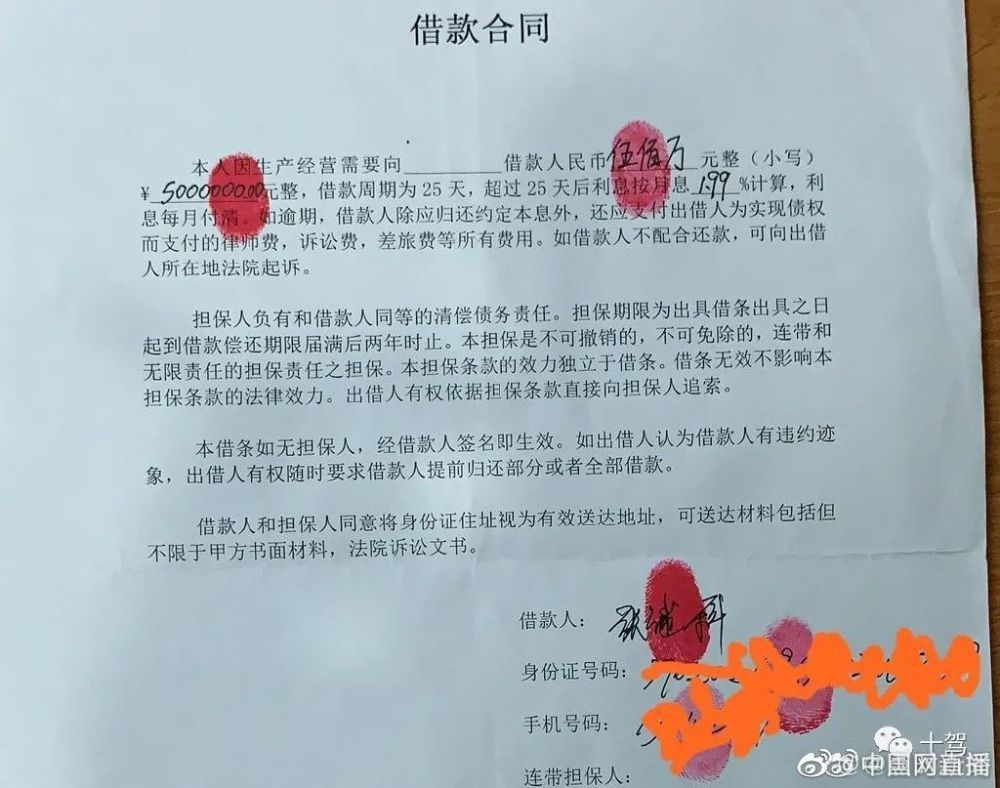 借款合同
本人因生产经营需要向________借款人民币伍佰万元整（小写）
¥ 5000000.00元整，借款周期为25天，超过25天后利息按月息1.99%计算，利
息每月付清。如逾期，借款人除应归还约定本息外，还应支付出借人为实现债权
而支付的律师费，诉讼费，差旅费等所有费用。如借款人不配合还款，可向出借
人所在地法院起诉。
担保人负有和借款人同等的清偿债务责任。担保期限为出具借条出具之日
起到借款偿还期限届满后两年时止。本担保是不可撤销的，不可免除的，连带和
无限责任的担保责任之担保。本担保条款的效力独立于借条。借条无效不影响本
担保条款的法律效力。出借人有权依据担保条款直接向担保人追索。
本借条如无担保人，经借款人签名即生效。如出借人认为借款人有违约迹
象，出借人有权随时要求借款人提前归还部分或者全部借款。
借款人和担保人同意将身份证住址视为有效送达地址，可送达材料包括但
不限于甲方书面材料，法院诉讼文书。
借款人：张继科
身份证号码：
手机号码：
连带担保人：
十驾
@中国网直播